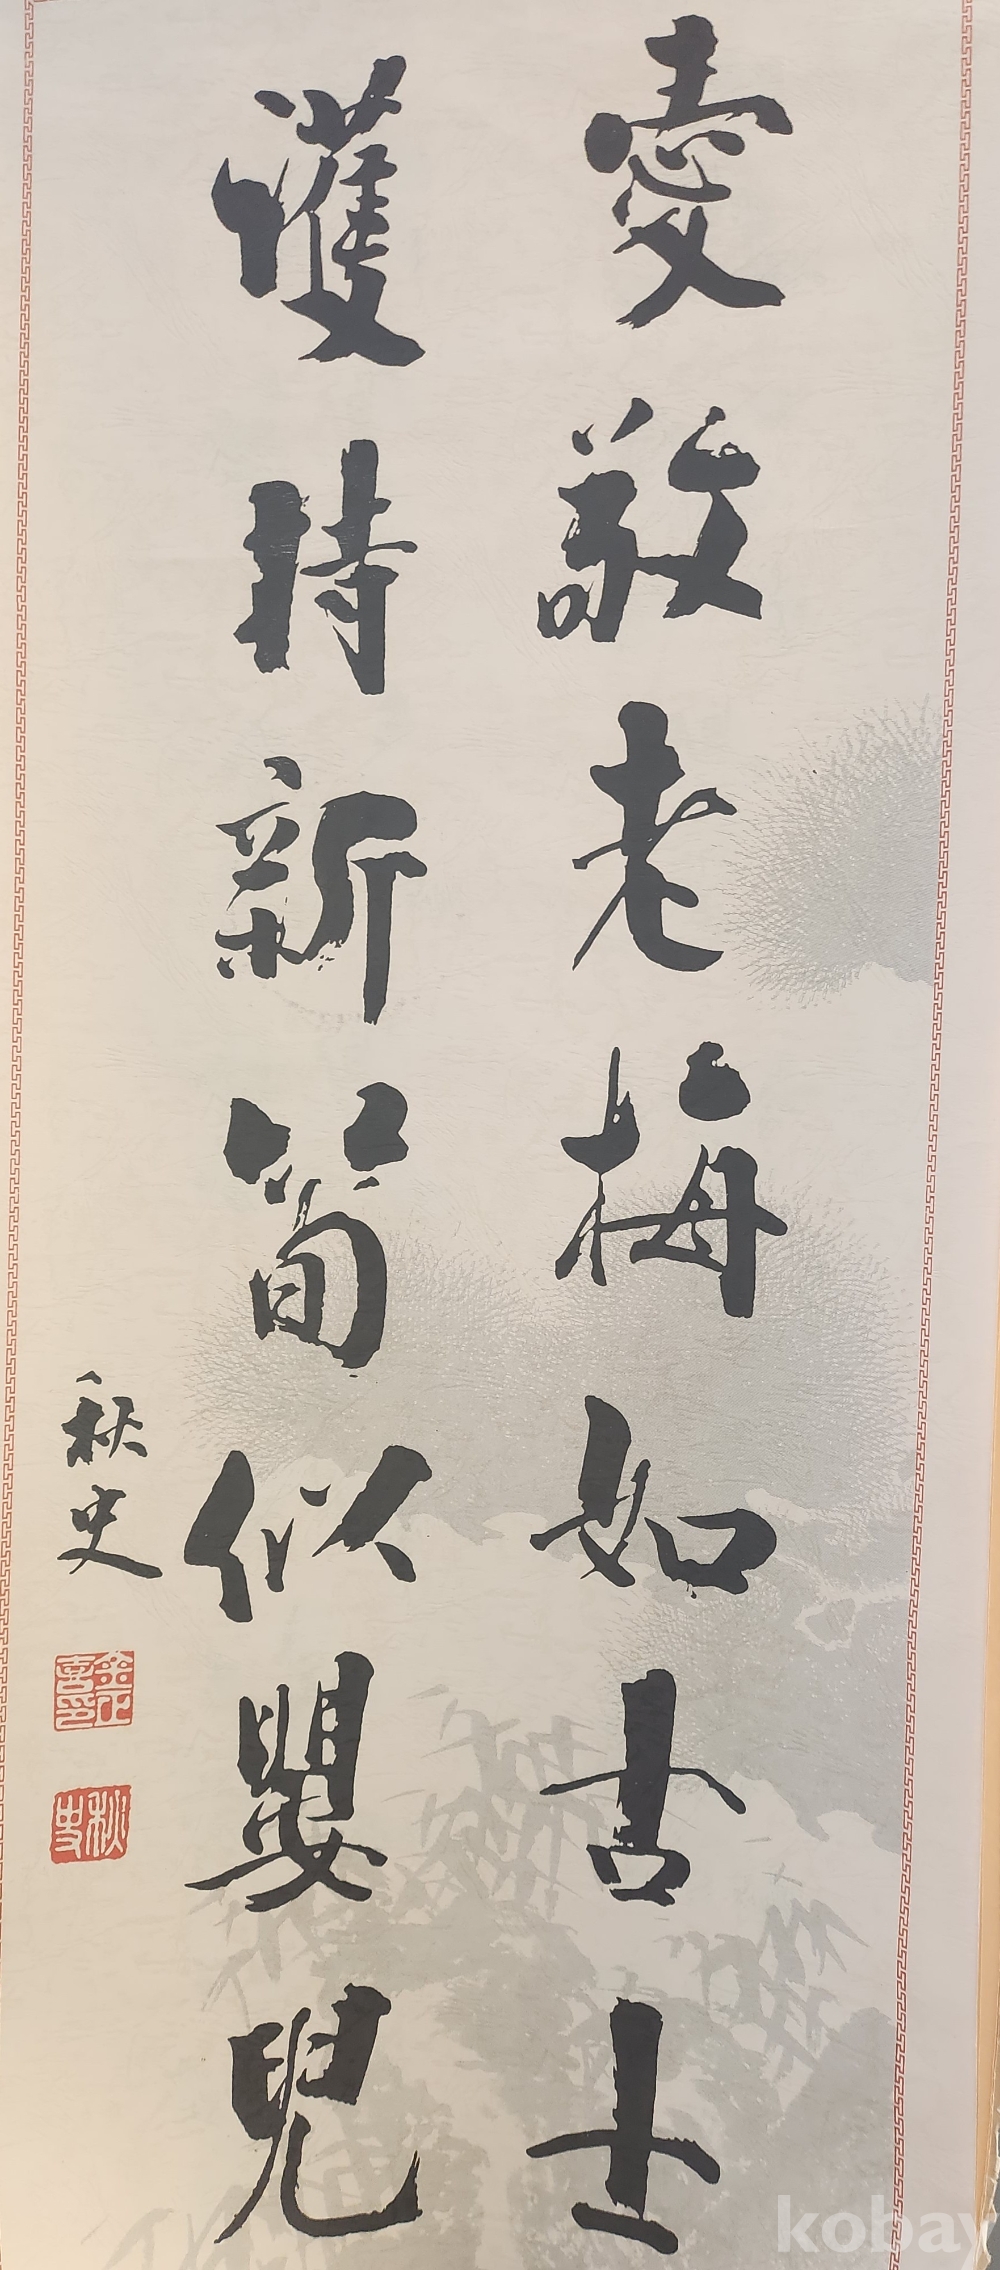 愛敬老梅如古士
護持新筍似嬰兒
秋史
金正喜印
秋史
kobay